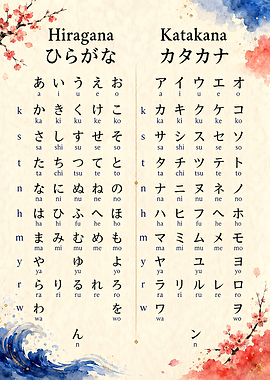 Hiragana
ひらがな
あ い う え お
a i u e o
k か き く け こ
ka ki ku ke ko
s さ し す せ そ
sa shi su se so
t た ち つ て と
ta chi tsu te to
n な に ぬ ね の
na ni nu ne no
h は ひ ふ へ ほ
ha hi fu he ho
m ま み む め も
ma mi mu me mo
y や ゆ よ
ya yu yo
r ら り る れ ろ
ra ri ru re ro
w わ を
wa wo
ん
n
Katakana
カタカナ
ア イ ウ エ オ
a i u e o
k カ キ ク ケ コ
ka ki ku ke ko
s サ シ ス セ ソ
sa shi su se so
t タ チ ツ テ ト
ta chi tsu te to
n ナ ニ ヌ ネ ノ
na ni nu ne no
h ハ ヒ フ ヘ ホ
ha hi fu he ho
m マ ミ ム メ モ
ma mi mu me mo
y ヤ ユ ヨ
ya yu yo
r ラ リ ル レ ロ
ra ri ru re ro
w ワ ヲ
wa wo
ン
n